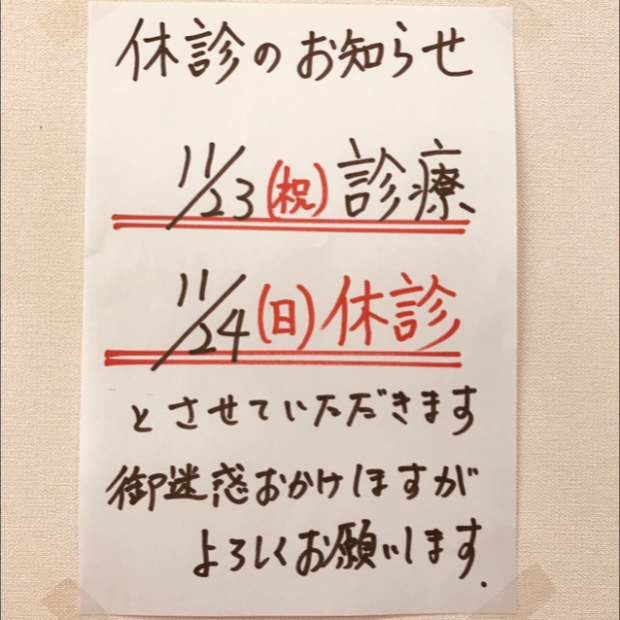 休診のお知らせ
11/23(祝)診療
11/24(日)休診
とさせていただきます
御迷惑おかけしますが
よろしくお願いします.